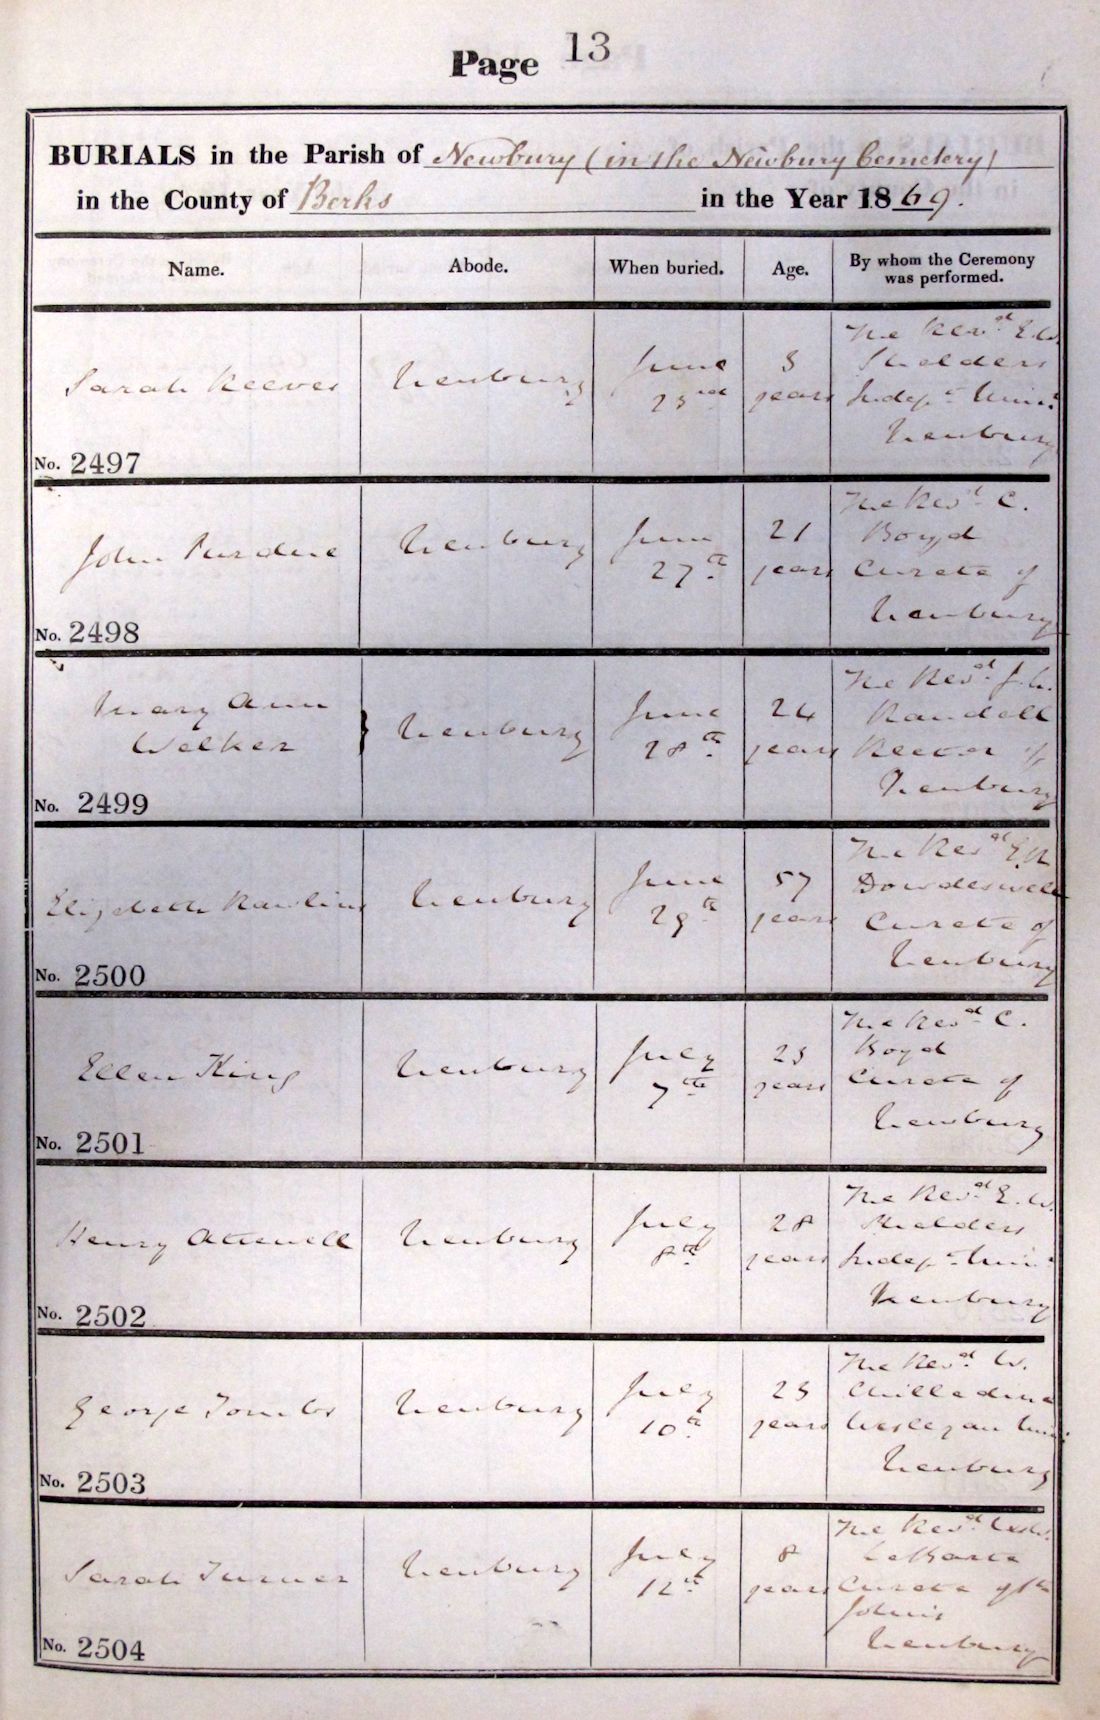 Page 13
BURIALS in the Parish of Newbury (in the Newbury Cemetery)
in the County of Berks in the Year 1869.
Name. Abode. When buried. Age. By whom the Ceremony was performed.
Sarah Reeves
No. 2497
Newbury
June
23rd
3
years
The Revd E.W.
Shalders
Indept Minr
Newbury
John Purdue
No. 2498
Newbury
June
27th
21
years
The Revd C.
Boyd
Curate of
Newbury
Mary Ann
Walker
No. 2499
Newbury
June
28th
24
years
The Revd J.L.
Randall
Rector of
Newbury
Elizabeth Rawlins
No. 2500
Newbury
June
29th
57
years
The Revd E.R.
Dowdeswell
Curate of
Newbury
Ellen King
No. 2501
Newbury
July
7th
23
years
The Revd C.
Boyd
Curate of
Newbury
Henry Attewell
No. 2502
Newbury
July
8th
28
years
The Revd E.W.
Shalders
Indept Minr
Newbury
George Tombs
No. 2503
Newbury
July
10th
23
years
The Revd W.
Wesleyan Min.
Newbury
Sarah Turner
No. 2504
Newbury
July
12th
8
years
The Revd
Curate of St
John's
Newbury